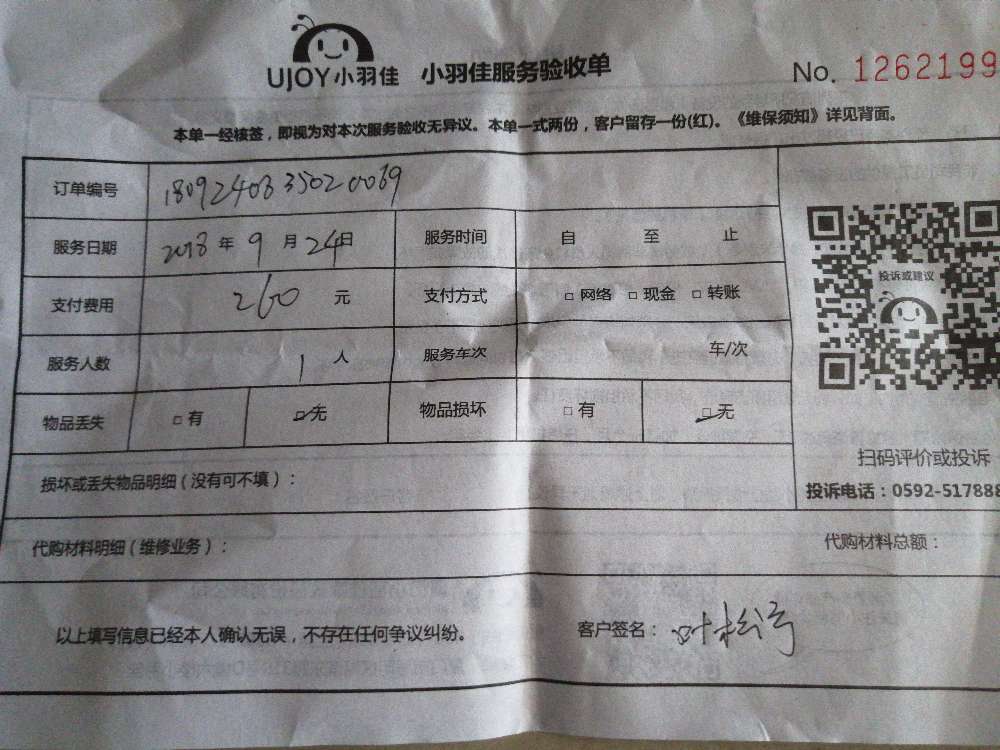 UJOY小羽佳 小羽佳服务验收单 No. 1262199
本单一经核签，即视为对本次服务验收无异议。本单一式两份，客户留存一份(红)。《维保须知》详见背面。
订单编号 1809240335020069
服务日期 2018 年 9 月 24日 服务时间 自 至 止
投诉或建议
支付费用 260 元 支付方式 □ 网络 □ 现金 □ 转账
服务人数 1 人 服务车次 车/次
物品丢失 □ 有 ☑ 无 物品损坏 □ 有 ☑ 无
扫码评价或投诉
损坏或丢失物品明细（没有可不填）：
投诉电话：0592-517888
代购材料明细（维修业务）： 代购材料总额：
以上填写信息已经本人确认无误，不存在任何争议纠纷。 客户签名：叶松